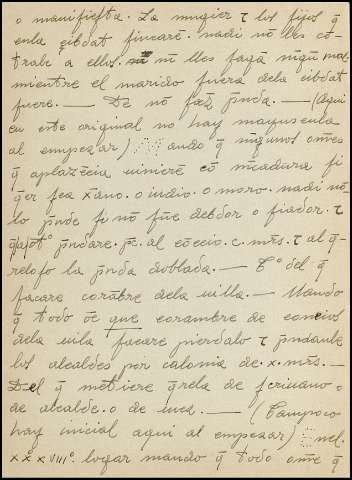 o manifiesta. La mugier ⁊ los fijos q̄
enla cibdat fincarē. nadi nō lles cō-
tralle a ellos. nī nō lles fagā nīgū mal
mientre el marido fuera dela cibdat
fuere. — De nō faz̄ p̄nda. — (Aqui
en este original no hay mayuscula
al empezar) ando q̄ nīgunos om̄es
q̄ aplazēcia uiniere cō m̄cadura si
q̄er sea xāno. o iudio. o moro. nadi nō
lo p̄nde si nō fūe debdor o fiador. ⁊
q̄ p̄ndare. pc̄. al cōceio. c. mr̄s. ⁊ al q̄-
reloso la p̄nda doblada. — Tº del q̄
sacare corābre dela uilla. — Mando
q̄ todo ōe que corambre de coneios
dela uila sacare pierdalo ⁊ p̄ndanle
los alcaldes por calonia de. x. mr̄s. —
Del q̄ metiere q̄rela de scriuano o
de alcalde. o de iura. — (Tampoco
hay inicial aqui al empezar) nel.
xxº xVIIIº. logar mando q̄ todo om̄e q̄